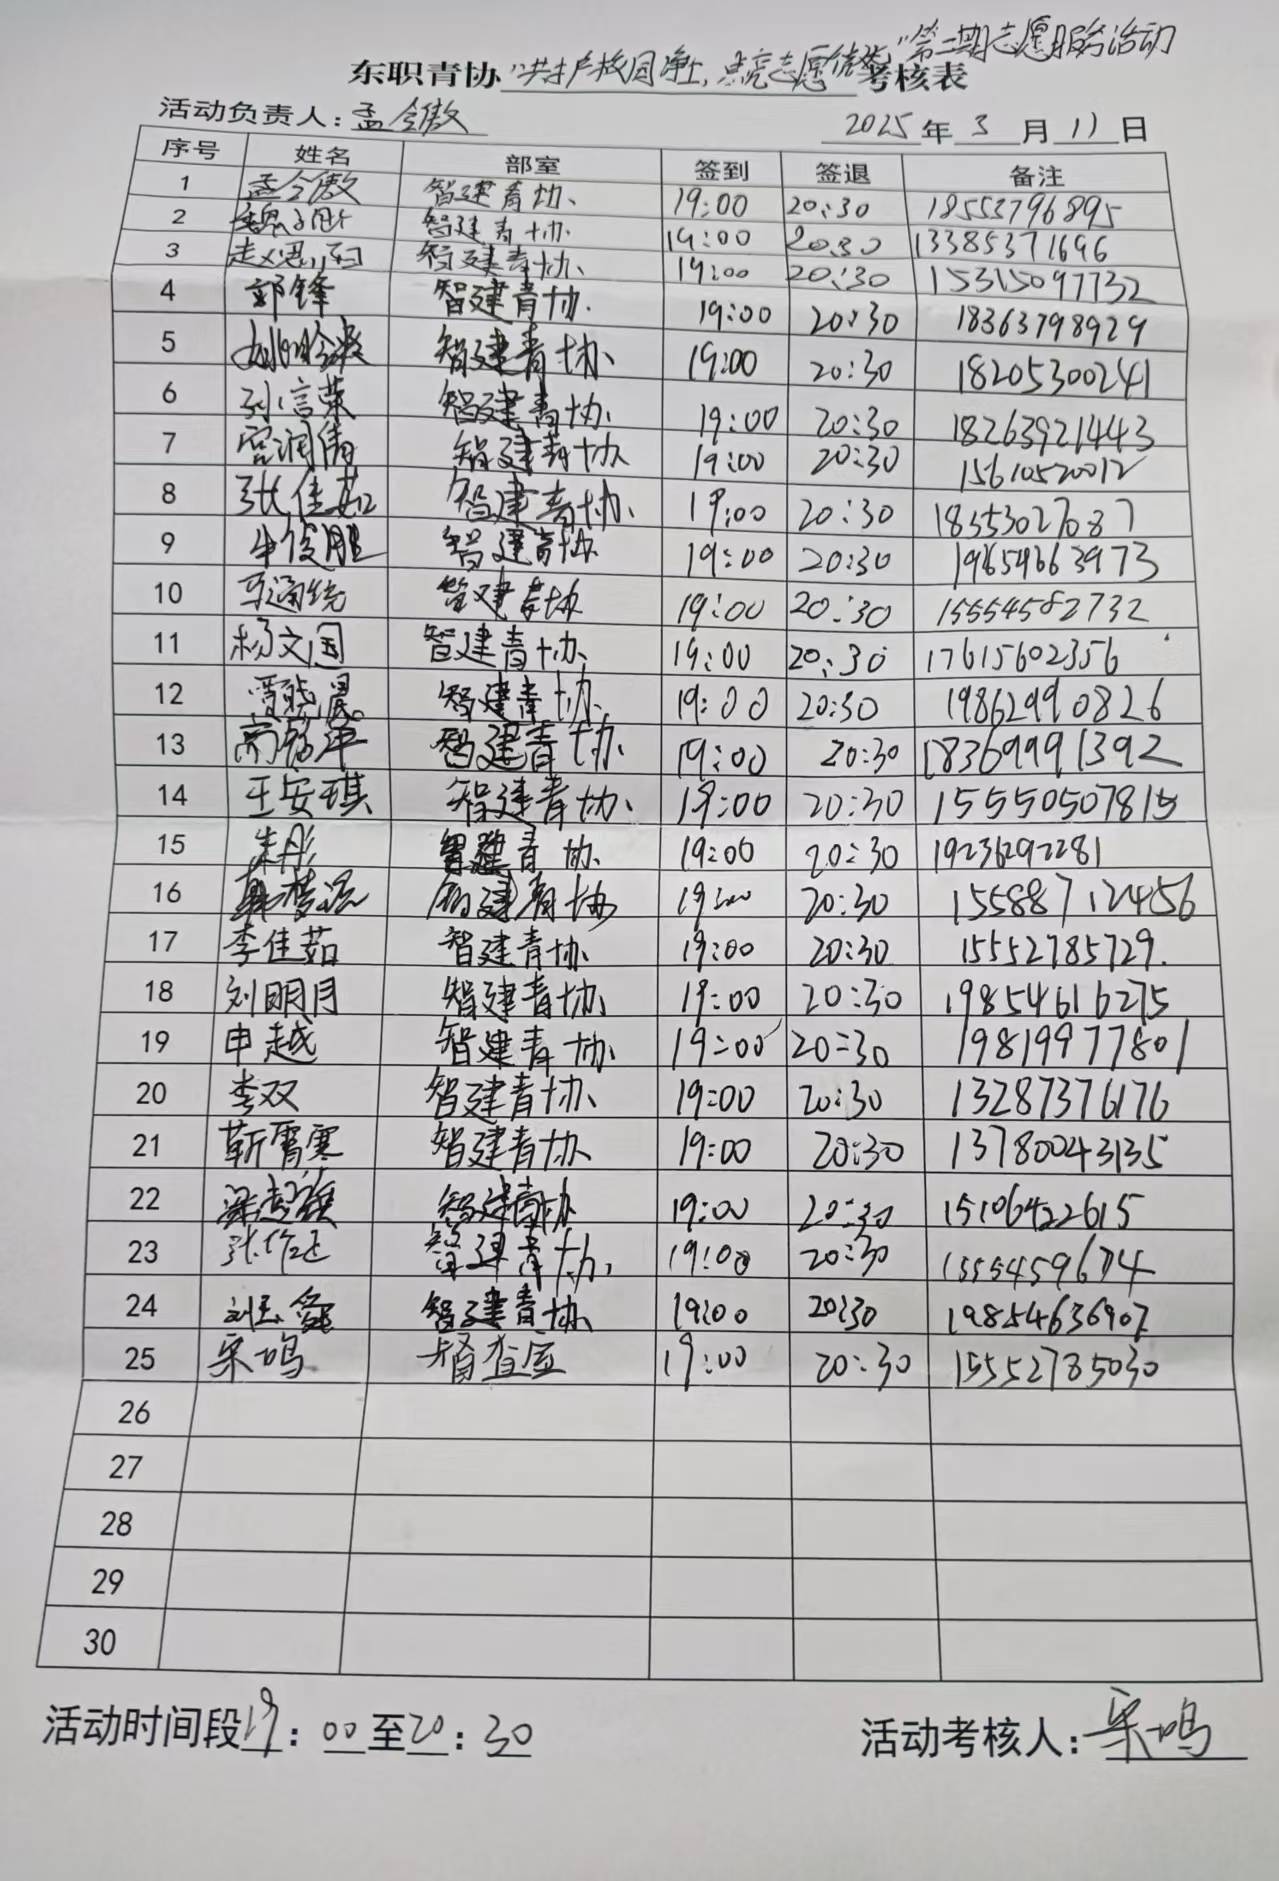 "第二期志愿服务活动
东职青协"共护校园净土,点亮志愿 考核表
活动负责人:孟令傲 2025年3月11日
序号 姓名 部室 签到 签退 备注
1 孟令傲 智建青协 19:00 20:30 18553796895
2 智建青协 19:00 20:30 13385371696
3 智建青协 19:00 20:30 15315097732
4 郭锋 智建青协 19:00 20:30 18363798929
5 智建青协 19:00 20:30 18205300241
6 孙信荣 智建青协 19:00 20:30 18263921443
7 宫润倩 智建青协 19:00 20:30 15610520012
8 张佳茹 智建青协 19:00 20:30 18353027087
9 牛俊胜 智建青协 19:00 20:30 19654663973
10 智建青协 19:00 20:30 15554582732
11 杨文国 智建青协 19:00 20:30 17615602356
12 贾晓晨 智建青协 19:00 20:30 19862990826
13 智建青协 19:00 20:30 18369991392
14 王安琪 智建青协 19:00 20:30 15550507815
15 朱彤 智建青协 19:00 20:30 19236292281
16 智建青协 19:00 20:30 15588712456
17 李佳茹 智建青协 19:00 20:30 15552785729.
18 刘明月 智建青协 19:00 20:30 19854616275
19 申越 智建青协 19:00 20:30 19819977801
20 李双 智建青协 19:00 20:30 13287376176
21 靳霄寒 智建青协 19:00 20:30 13780043135
22 智建青协 19:00 20:30 15106422615
23 智建青协 19:00 20:30
24 智建青协 19:00 20:30 19854636907
25 采鸣 督查室 19:00 20:30 15552785030
26
27
28
29
30
活动时间段19:00至20:30 活动考核人:采鸣